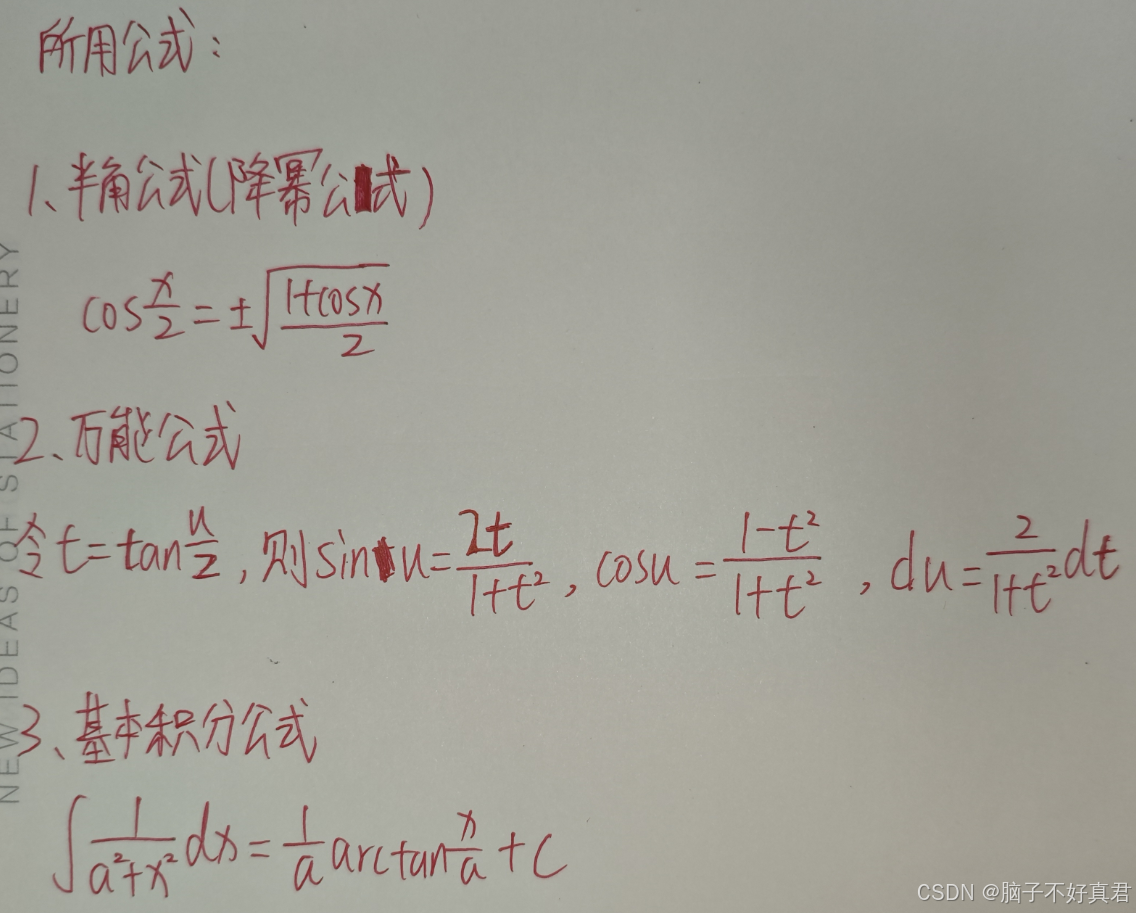 所用公式：
1、半角公式(降幂公式)
cos x/2 = ±√((1+cosx)/2)
2、万能公式
令t=tan u/2，则sinu=2t/(1+t²)，cosu=(1-t²)/(1+t²)，du=2/(1+t²)dt
3、基本积分公式
∫1/(a²+x²)dx=1/a arctan x/a+C
NEW IDEAS OF STATIONERY
CSDN @脑子不好真君